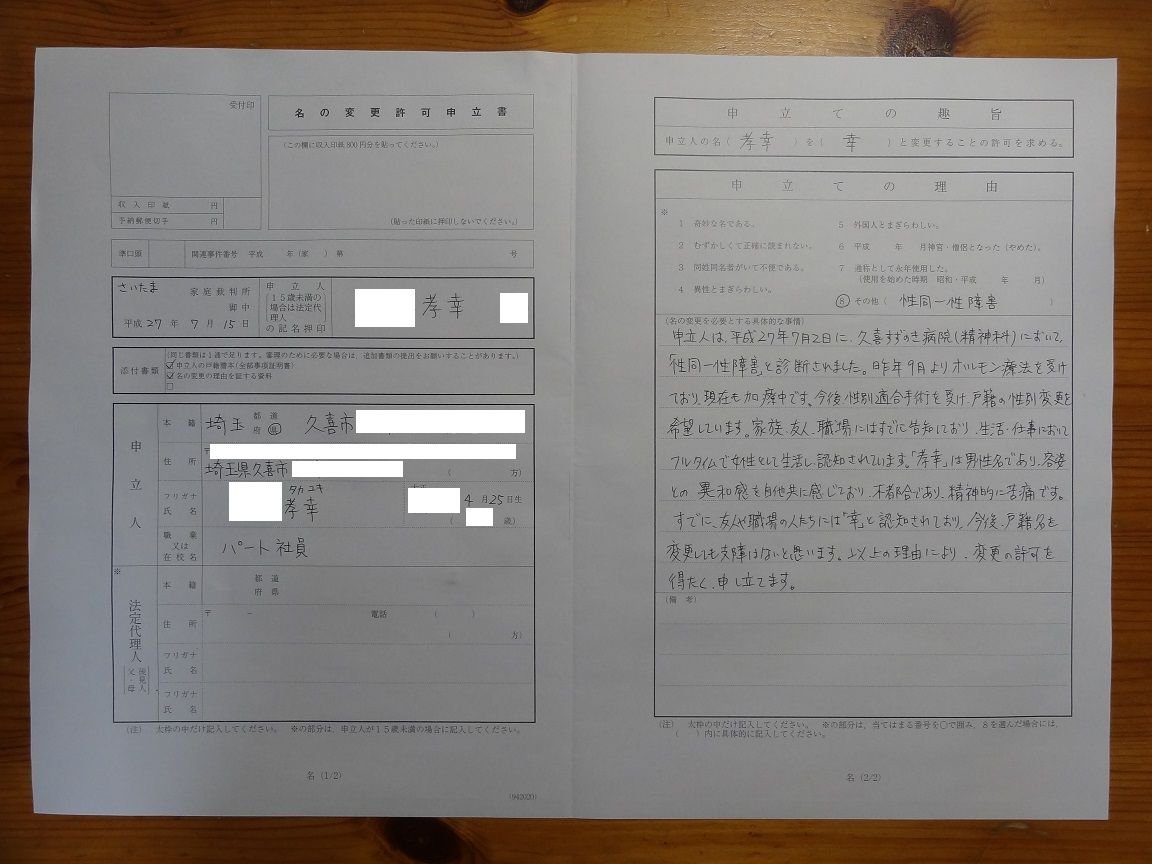 受付印
名の変更許可申立書
(この欄に収入印紙800円分を貼ってください。)
(貼った印紙に押印しないでください。)
収入印紙 円
予納郵便切手 円
準口頭 関連事件番号 平成 年(家 )第 号
さいたま 家庭裁判所
御中
平成27年7月15日
申立人
15歳未満の
場合は法定代
理人
の記名押印
孝幸
添付書類
(同じ書類は1通で足ります。審理のために必要な場合は、追加書類の提出をお願いすることがあります。)
☑申立人の戸籍謄本(全部事項証明書)
☑名の変更の理由を証する資料
□
申立人
本籍 埼玉 都道府県 久喜市
住所 〒
埼玉県久喜市 ( 方)
フリガナ タカユキ
氏名 孝幸
4月25日生
( 歳)
職業
又は
在校名
パート社員
※
法定代理人
後見人
父・母
本籍 都道
府県
住所 〒 - 電話 ( )
( 方)
フリガナ
氏名
フリガナ
氏名
(注) 太枠の中だけ記入してください。 ※の部分は、申立人が15歳未満の場合に記入してください。
名(1/2)
(942020)
申立ての趣旨
申立人の名(孝幸)を(幸)と変更することの許可を求める。
申立ての理由
※
1 奇妙な名である。
2 むずかしくて正確に読まれない。
3 同姓同名者がいて不便である。
4 異性とまぎらわしい。
5 外国人とまぎらわしい。
6 平成 年 月神官・僧侶となった(やめた)。
7 通称として永年使用した。
(使用を始めた時期 昭和・平成 年 月)
⑧ その他(性同一性障害)
(名の変更を必要とする具体的な事情)
申立人は、平成27年7月2日に、久喜すずのき病院(精神科)において、
「性同一性障害」と診断されました。昨年9月よりホルモン療法を受け
ており、現在も加療中です。今後、性別適合手術を受け、戸籍の性別変更を
希望しています。家族、友人、職場にはすでに告知しており、生活・仕事において
フルタイムで女性として生活し認知されています。「孝幸」は男性名であり、容姿
との異和感を自他共に感じており、不都合であり、精神的に苦痛です。
すでに、友人や職場の人たちには「幸」と認知されており、今後、戸籍名を
変更しても支障はないと思います。以上の理由により、変更の許可を
得たく、申し立てます。
(備考)
(注) 太枠の中だけ記入してください。 ※の部分は、当てはまる番号を○で囲み、8を選んだ場合には、
( )内に具体的に記入してください。
名(2/2)